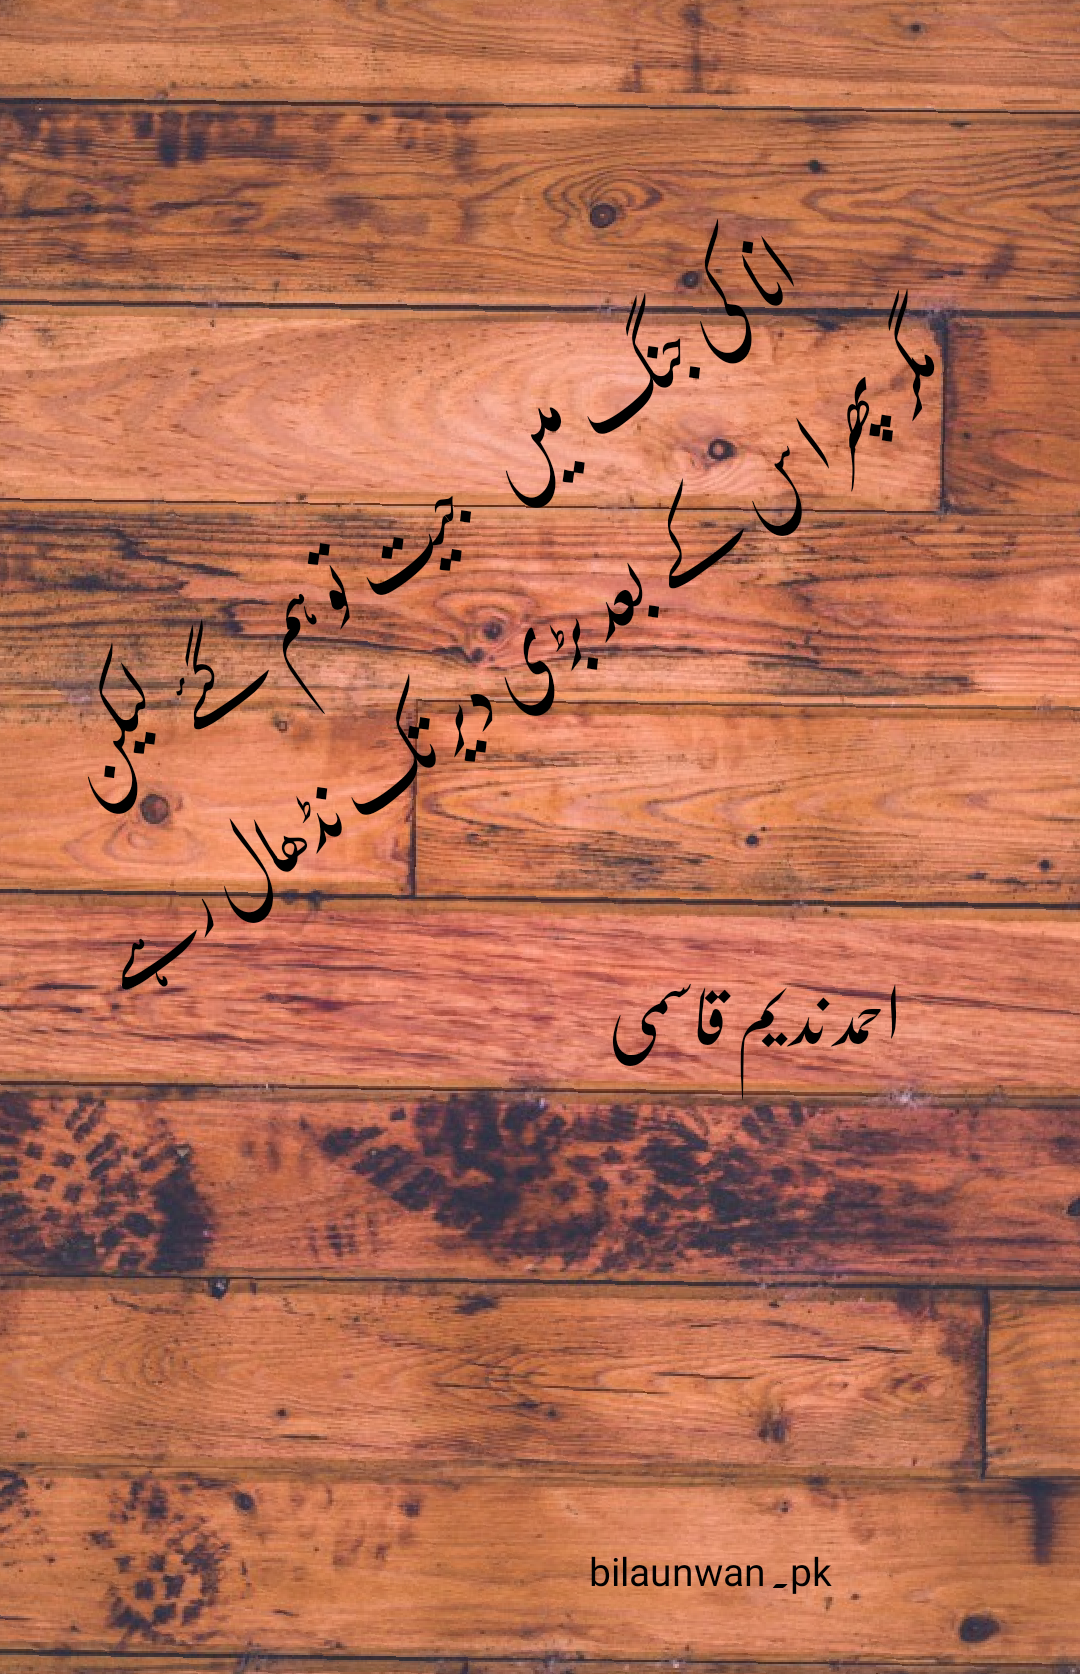 انا کی جنگ میں جیت تو ہم گئے لیکن
مگر پھر اس کے بعد بڑی دیر تک نڈھال رہے
احمد ندیم قاسمی
bilaunwan ـ pk